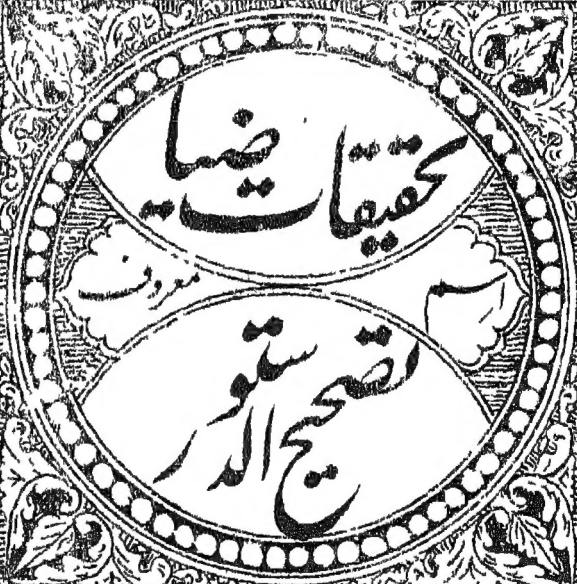 تحقیقات ضیا
معروف
تصحیح الدستور